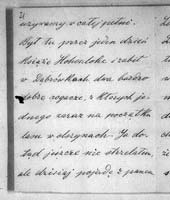 używamy w całej pełni.
Był tu przez jeden dzień
książę Hohenlohe i zabił
w Dąbrówkach dwa bardzo
dobre rogacze, z których je-
dnego zaraz na początku
lasu w olszynach. Ja do-
tąd jeszcze nie strzelałem
ale dzisiaj pojadę z panem